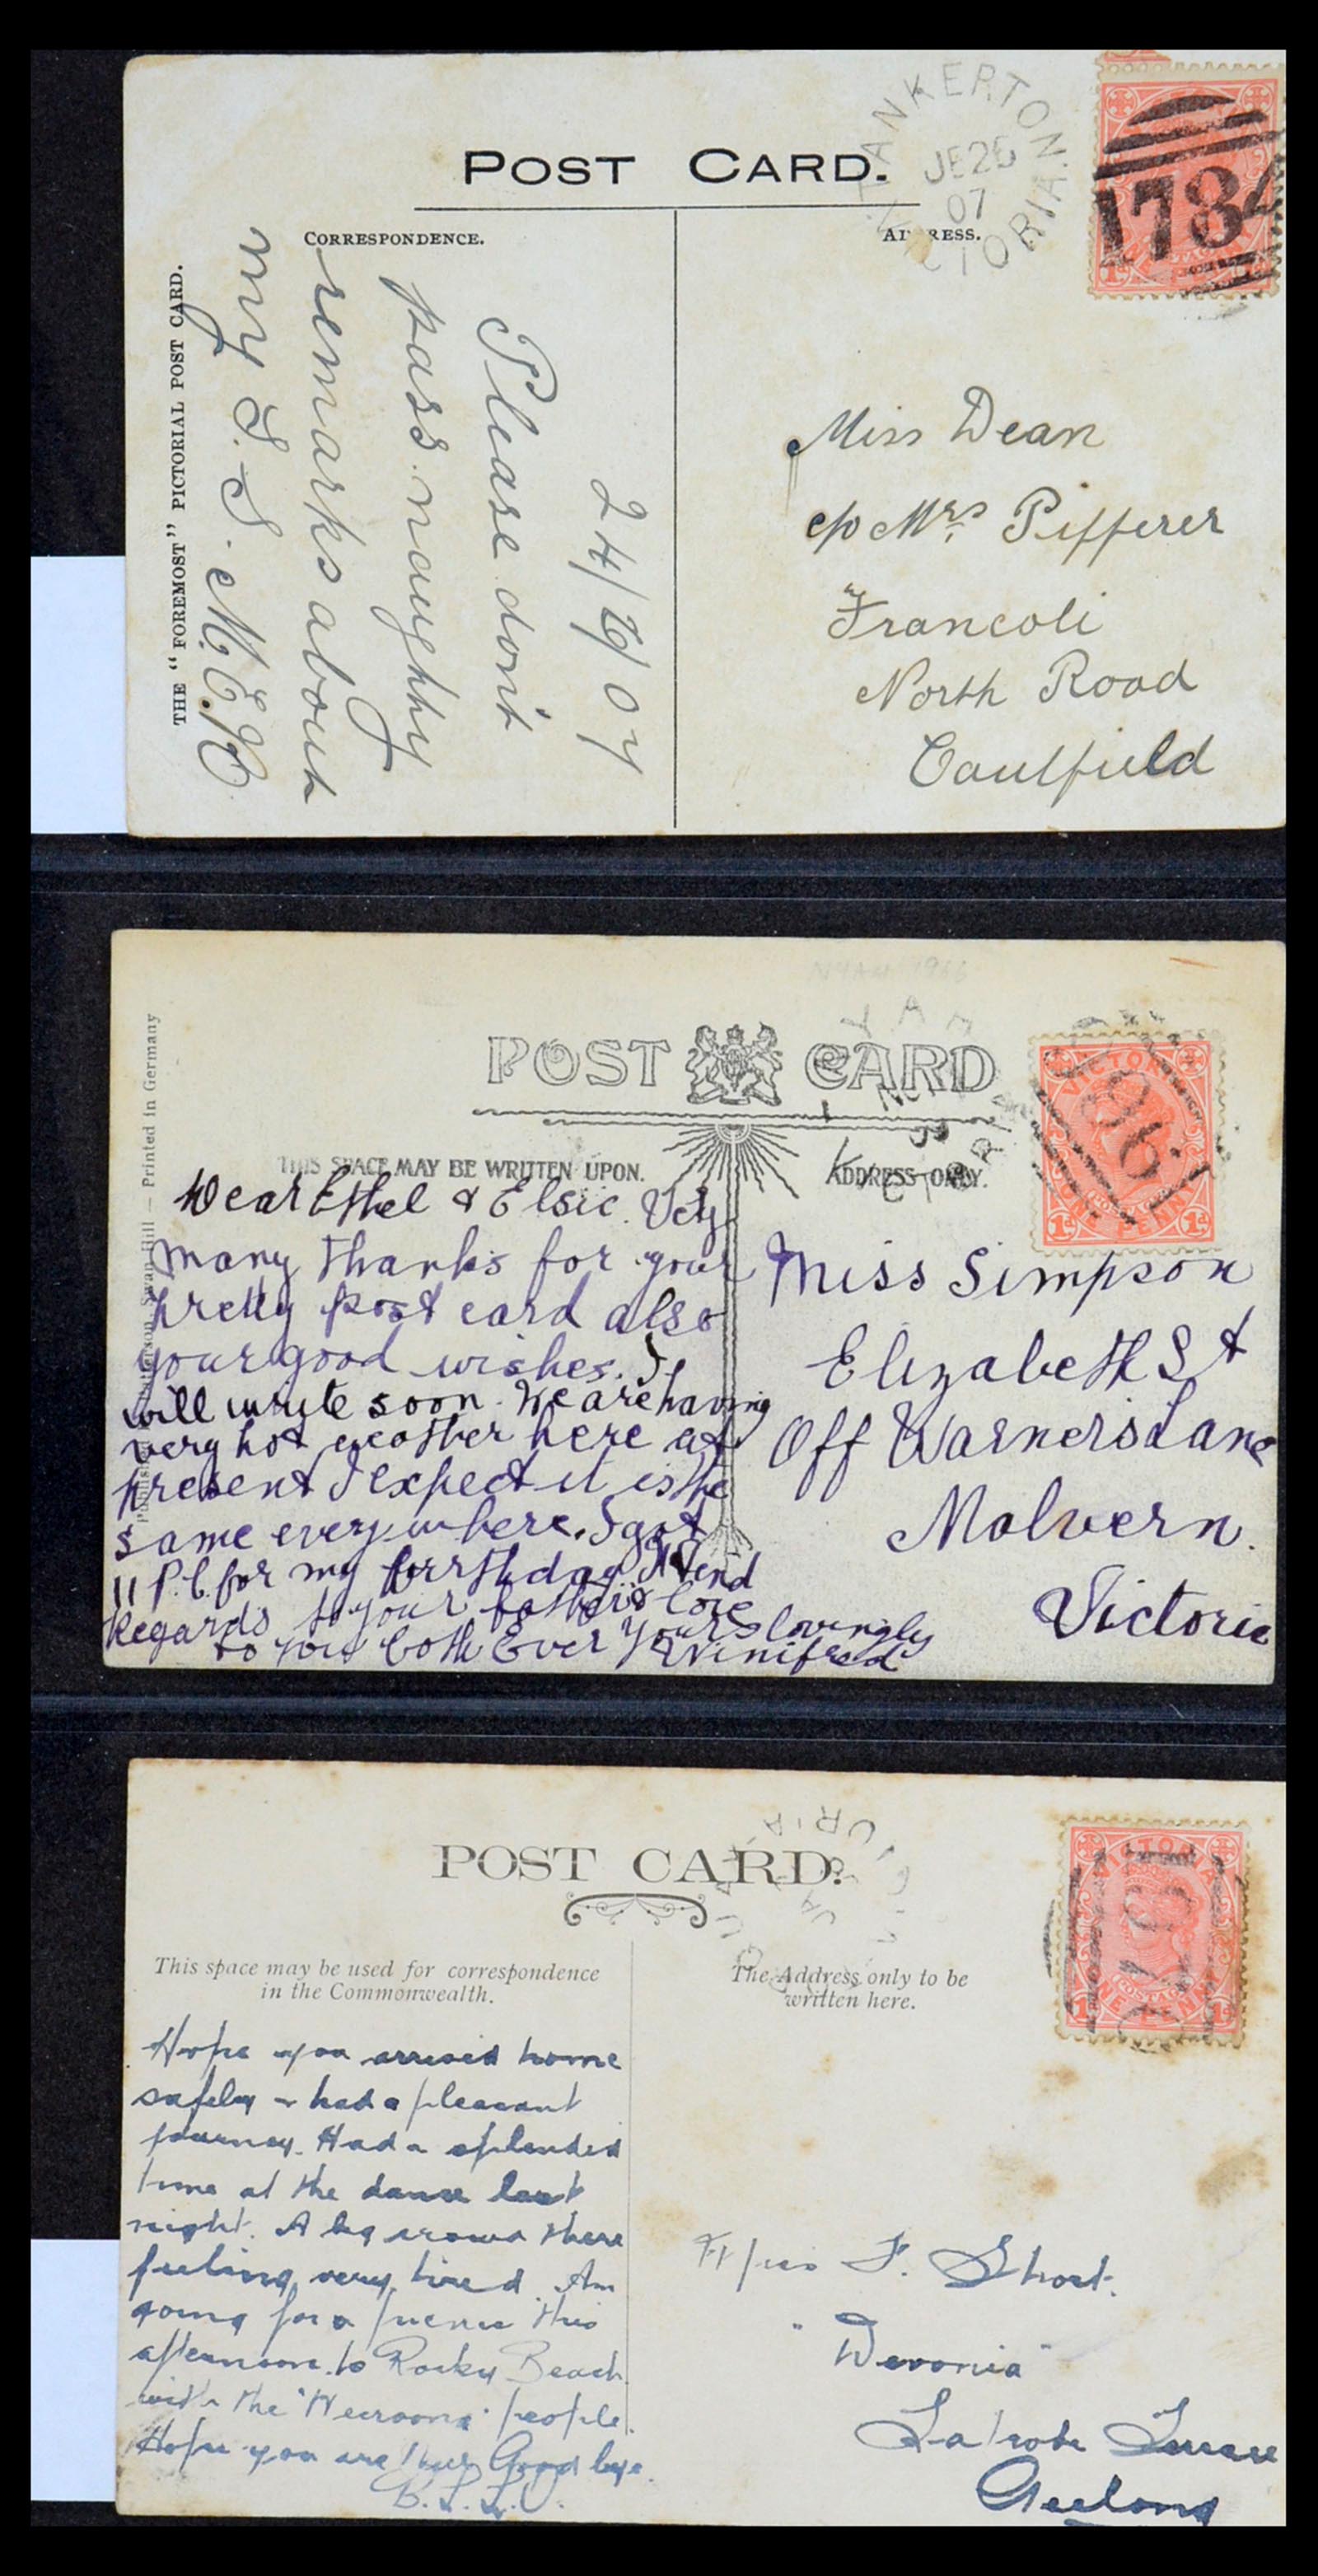 POST CARD.
TANKERTON
JE 25
07
VICTORIA
1784
CORRESPONDENCE.
ADDRESS.
THE "FOREMOST" PICTORIAL POST CARD.
24/6/07
Please don't
pass naughty
remarks about
my S. S. M.E.K
Miss Dean
c/o Mrs Pifferer
Francoli
North Road
Caulfield
NYAH 1966
POST CARD
VICTORIA
ONE PENNY
THIS SPACE MAY BE WRITTEN UPON.
ADDRESS ONLY.
Swan Hill — Printed in Germany
Dear Ethel & Elsie. Very
many thanks for your
pretty post card also
your good wishes. I
will write soon. We are having
very hot weather here at
present I expect it is the
same everywhere. I got
11 P.C. for my birthday Kind
Regards to your father & love
to you both Ever Yours lovingly
Winifred
Miss Simpson
Elizabeth St
Off Warners Lane
Malvern.
Victoria
POST CARD.
This space may be used for correspondence
in the Commonwealth.
The Address only to be
written here.
Hope you arrived home
safely & had a pleasant
journey. Had a splended
time at the dance last
night. A big crowd there
feeling very tired. Am
going for a picnic this
afternoon to Rocky Beach
with the "Weeroona" people.
Hope you are Good bye.
Miss F. Short.
"Devonia"
Latrobe Terrace
Geelong